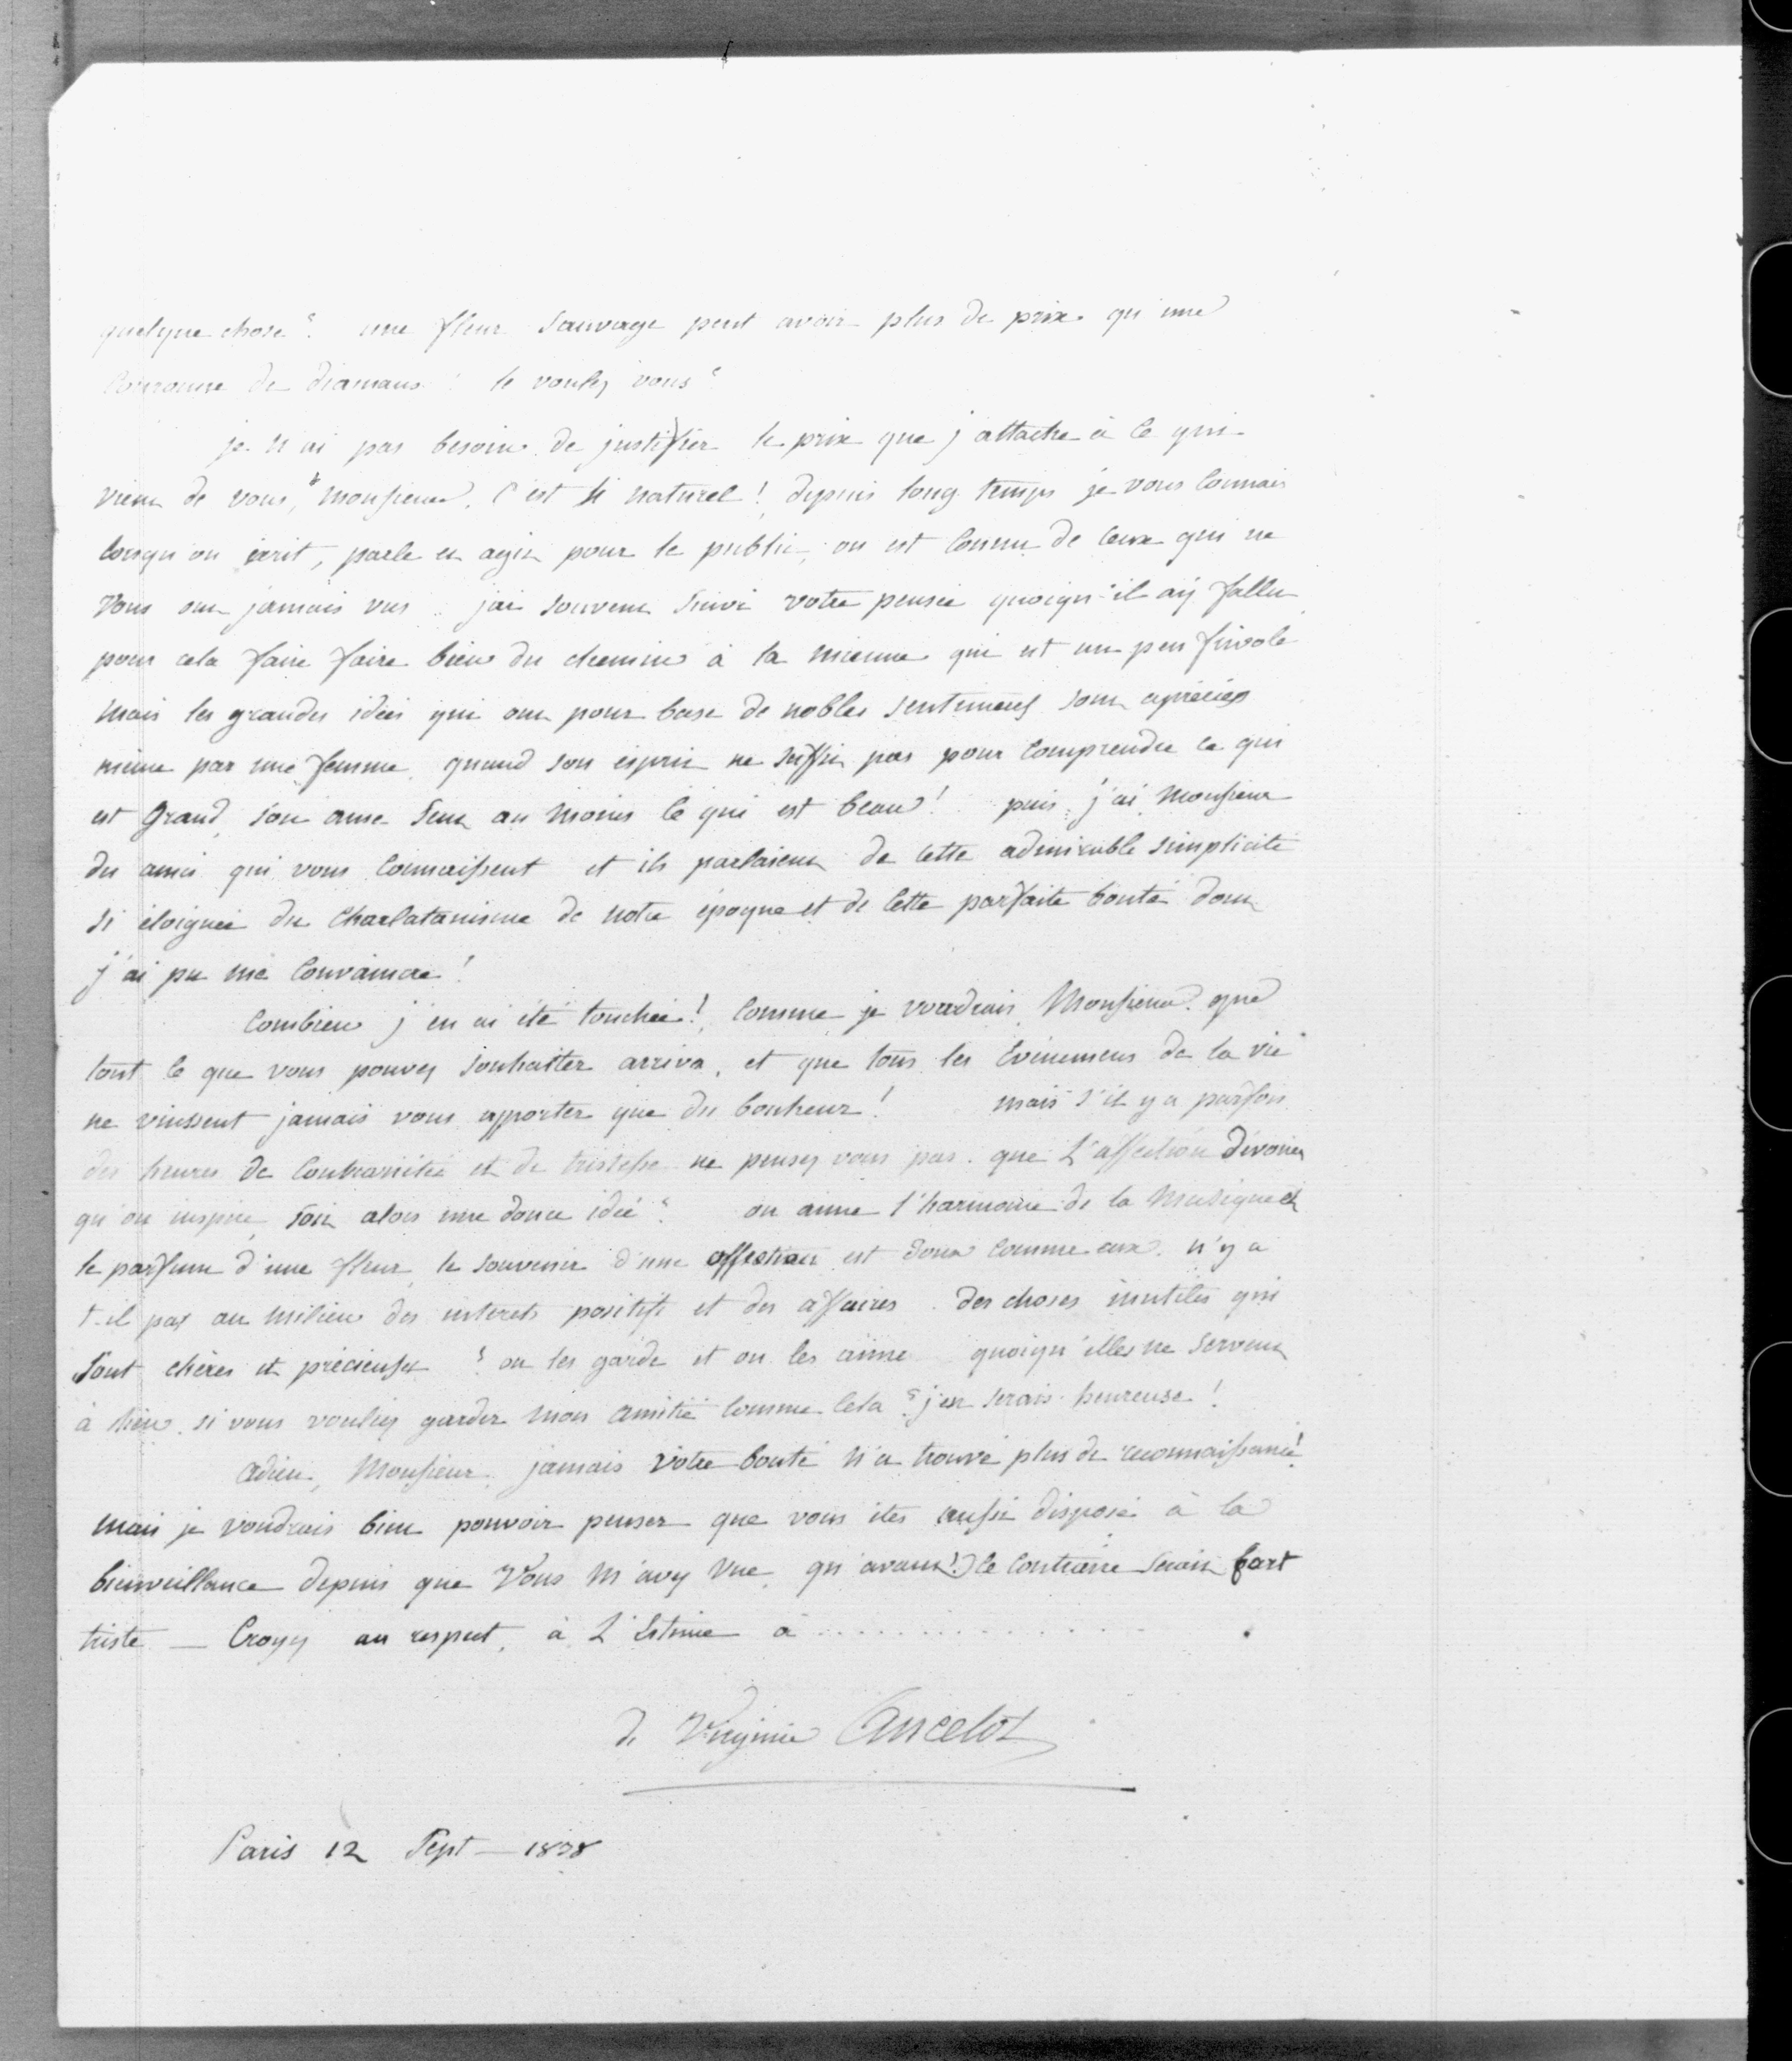 quelque chose ? une fleur sauvage peut avoir plus de prix qu'une
Couronne de diamans ! le voulez vous ?
je n'ai pas besoin de justifier le prix que j'attache à ce qui
vient de vous, Monsieur, C'est si naturel ! depuis long temps je vous Connais
lorsqu'on écrit, parle et agit pour le public, on est Connu de Ceux qui ne
Vous ont jamais vus . j'ai souvent suivi votre pensée quoiqu'il ay fallu
pour cela faire faire bien du chemin à la mienne qui est un peu frivole
mais les grandes idées qui ont pour base de nobles sentimens sont apréciées
même par une femme, quand son esprit ne suffit pas pour Comprendre ce qui
est grand, son ame sent au moins ce qui est beau ! puis, j'ai, Monsieur
des amis qui vous Connaissent et ils parlaient de Cette admirable simplicité
si éloignée du Charlatanisme de notre époque et de Cette parfaite bonté dont
j'ai pu me Convaincre !
Combien j'en ai été touchée ! Comme je voudrais, Monsieur, que
tout ce que vous pouvez souhaiter arriva, et que tous les Évènemens de la vie
ne vinssent jamais vous apporter que du bonheur ! mais s'il y a parfois
des heures de Contrariétée et de tristesse ne pensez vous pas que L'affection dévouée
qu'on inspire, soit alors une douce idée ? on aime l'harmonie de la Musique et
le parfum d'une fleur, le souvenir d'une affection est doux Comme eux. n'y a
t-il pas au milieu des interets positifs et des affaires des choses inutiles qui
sont chères et précieuses ? on les garde et on les aime quoiqu'elles ne servent
à rien. si vous vouliez garder mon amitié Comme Cela ? j'en serais heureuse !
adieu, Monsieur, jamais votre bonté n'a trouvé plus de reconnaissance !
mais je voudrais bien pouvoir penser que vous êtes aussi disposé à la
bienveillance depuis que Vous m'avez Vue, qu'avant ! le Contraire serait fort
triste — Croyez au respect, à L'Estime à . . . . . . . . . . . . . . .
de Virginie Ancelot
Paris 12 Sept — 1838